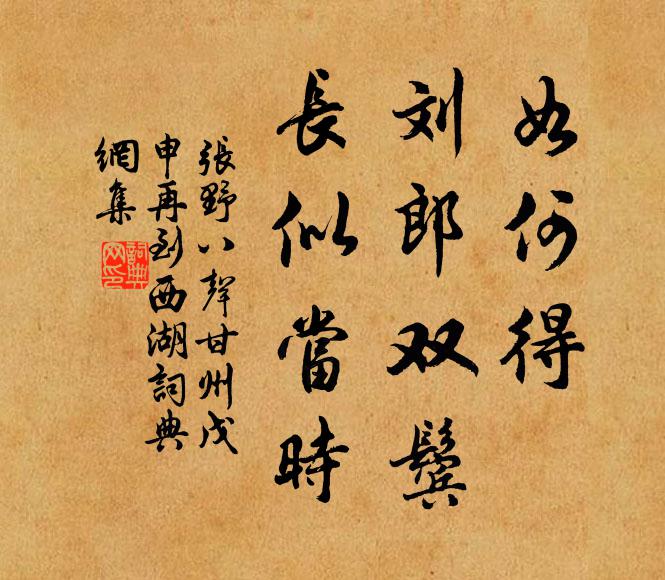 如何得
刘郎双鬓
長似當時
張野八聲甘州戊
申再到西湖詞典
網集
詞典
网印